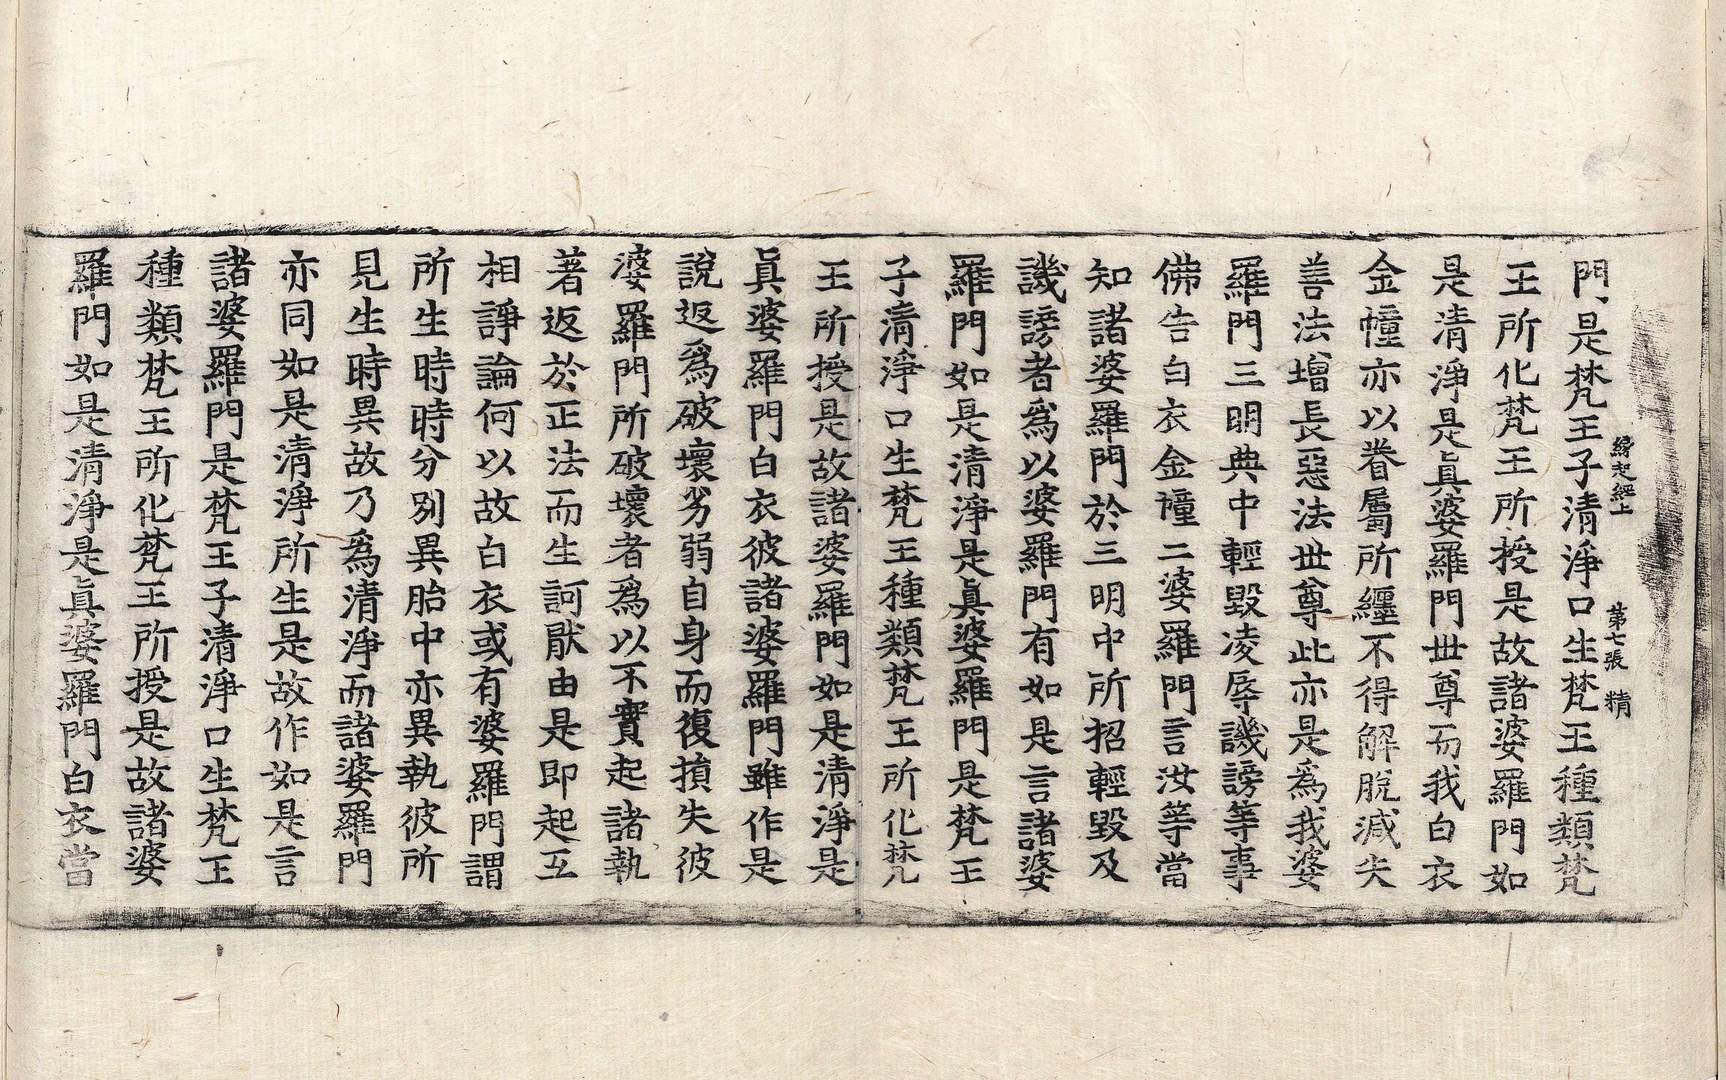 縁起経上 第七張 精
門是梵王子清淨口生梵王種類梵
王所化梵王所授是故諸婆羅門如
是清淨是眞婆羅門世尊而我白衣
金幢亦以眷屬所纒不得解脫減失
善法增長惡法世尊此亦是爲我婆
羅門三明典中輕毀凌辱譏謗等事
佛告白衣金幢二婆羅門言汝等當
知諸婆羅門於三明中所招輕毀及
譏謗者爲以婆羅門有如是言諸婆
羅門如是清淨是眞婆羅門是梵王
子清淨口生梵王種類梵王所化梵
王所授是故諸婆羅門如是清淨是
眞婆羅門白衣彼諸婆羅門雖作是
說返爲破壞劣弱自身而復損失彼
婆羅門所破壞者爲以不實起諸執
著返於正法而生訶猒由是即起互
相諍論何以故白衣或有婆羅門謂
所生時時分別異胎中亦異執彼所
見生時異故乃爲清淨而諸婆羅門
亦同如是清淨所生是故作如是言
諸婆羅門是梵王子清淨口生梵王
種類梵王所化梵王所授是故諸婆
羅門如是清淨是眞婆羅門白衣當